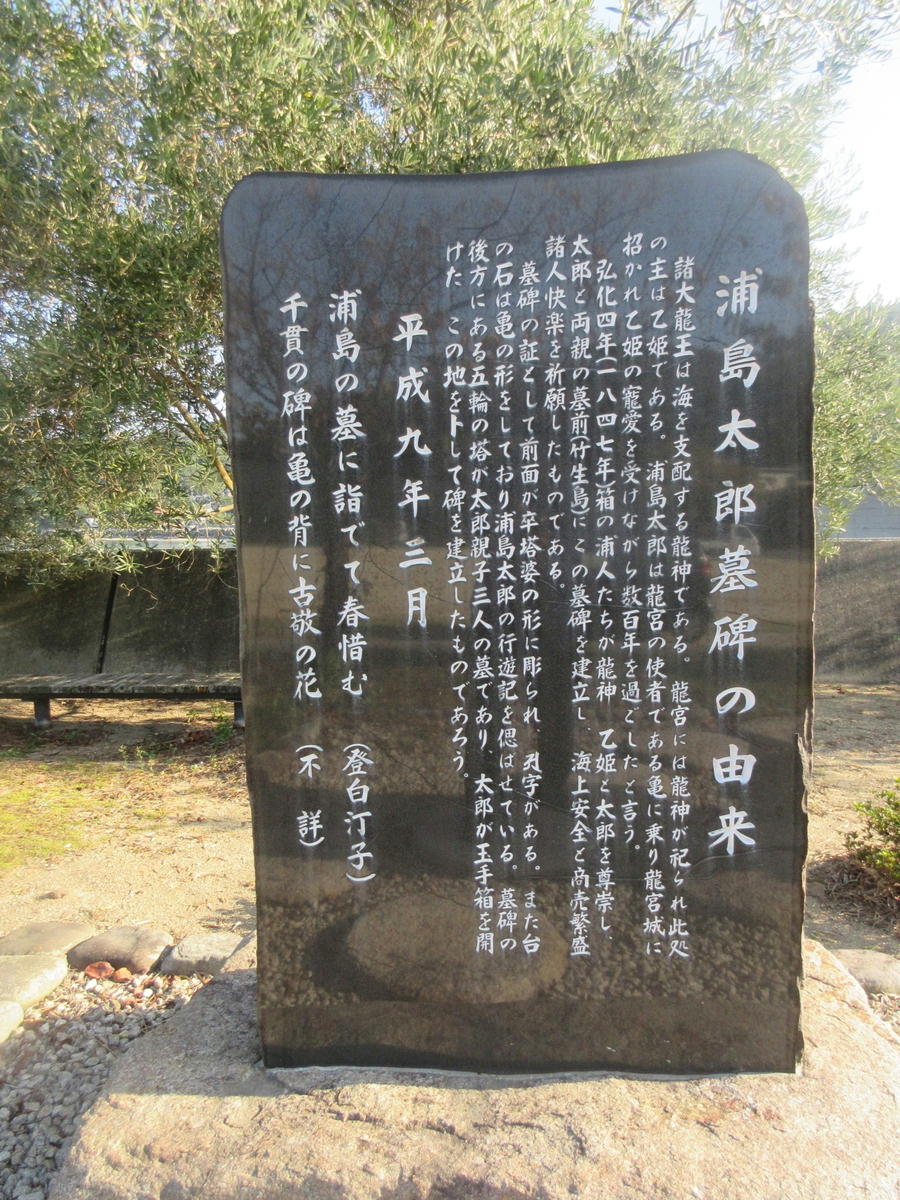 浦島太郎墓碑の由来
諸大龍王は海を支配する龍神である。龍宮には龍神が祀られ此処
の主は乙姫である。浦島太郎は龍宮の使者である亀に乗り龍宮城に
招かれ乙姫の寵愛を受けながら数百年を過ごしたと言う。
弘化四年(一八四七年)箱の浦人たちが龍神、乙姫と太郎を尊崇し、
太郎と両親の墓前(竹生島)にこの墓碑を建立し、海上安全と商売繁盛
諸人快楽を祈願したものである。
墓碑の証として前面が卒塔婆の形に彫られ、刃字がある。また台
の石は亀の形をしており浦島太郎の行遊記を偲ばせている。墓碑の
後方にある五輪の塔が太郎親子三人の墓であり、太郎が玉手箱を開
けた この地を卜して碑を建立したものであろう。
平成九年三月
浦島の墓に詣でて春惜む (登白汀子)
千貫の碑は亀の背に古敬の花 (不詳)